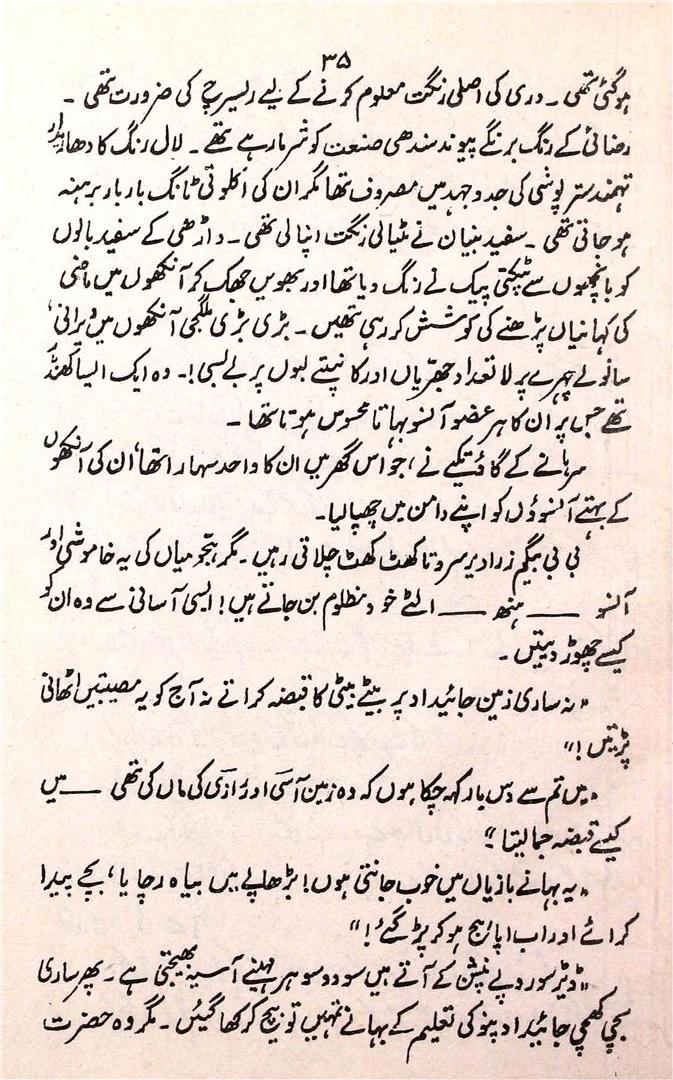 ۳۵
ہوگئی تھی ۔ دری کی اصلی رنگت معلوم کرنے کے لیے ریسرچ کی ضرورت تھی ۔
رضائی کے رنگ برنگے پیوند سندھی صنعت کو شرما رہے تھے ۔ لال رنگ کا دھاریدار
تہمند ستر پوشی کی جدوجہد میں مصروف تھا مگر ان کی اکلوتی ٹانگ بار بار برہنہ
ہو جاتی تھی ۔ سفید بنیان نے مٹیالی رنگت اپنا لی تھی ۔ داڑھی کے سفید بالوں
کو بانچھوں سے ٹپکتی پیک نے رنگ دیا تھا اور بھویں جھک کر آنکھوں میں ماضی
کی کہانیاں پڑھنے کی کوشش کر رہی تھیں ۔ بڑی بڑی ملگجی آنکھوں میں ویرانی،
سانولے چہرے پر لاتعداد جھریاں اور کانپتے لبوں پر بے بسی !۔ وہ ایک ایسا کھنڈر
تھے جس پر ان کا ہر عضو آنسو بہاتا محسوس ہوتا تھا ۔
سرہانے کے گاؤ تکیے نے ، جو اس گھر میں ان کا واحد سہارا تھا، ان کی آنکھوں
کے بہتے آنسوؤں کو اپنے دامن میں چھپا لیا ۔
بی بی بیگم ذرا دیر سروتا کھٹ کھٹ چلاتی رہیں ۔ مگر ہجو میاں کی یہ خاموشی اور
آنسو —— ہنھ —— الٹے خود مظلوم بن جاتے ہیں ! ایسی آسانی سے وہ ان کو
کیسے چھوڑ دیتیں ۔
"نہ ساری زمین جائیداد پر بیٹے بیٹی کا قبضہ کراتے نہ آج کو یہ مصیبتیں اٹھانی
پڑتیں !"
"میں تم سے دس بار کہہ چکا ہوں کہ وہ زمین آسی اور رازی کی ماں کی تھی —— میں
کیسے قبضہ جما لیتا ؟"
"یہ بہانے بازیاں میں خوب جانتی ہوں ! بڑھاپے میں بیاہ رچایا، بچے پیدا
کرائے اور اب اپاہج ہو کر پڑ گئے !"
"ڈیڑھ سو روپے پنشن کے آتے ہیں سو دو سو ہر مہینے آسیہ بھیجتی ہے ۔ پھر ساری
بچی کھچی جائیداد پنو کی تعلیم کے بہانے تمہیں تو بیچ کر کھا گئیں ۔ مگر وہ حضرت